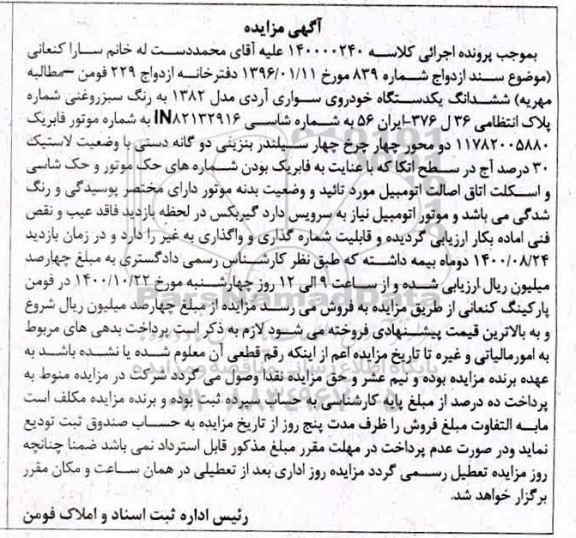 آگهی مزایده
بموجب پرونده اجرائی کلاسه ۱۴۰۰۰۰۲۴۰ علیه آقای محمددست له خانم سارا کنعانی
(موضوع سند ازدواج شماره ۸۳۹ مورخ ۱۳۹۶/۰۱/۱۱ دفترخانه ازدواج ۲۲۹ فومن –مطالبه
مهریه) ششدانگ یکدستگاه خودروی سواری آردی مدل ۱۳۸۲ به رنگ سبزروغنی شماره
پلاک انتظامی ۳۶ ل ۳۷۶-ایران ۵۶ به شماره شاسی IN۸۲۱۳۲۹۱۶ به شماره موتور فابریک
۱۱۷۸۲۰۰۵۸۸۰ دو محور چهار چرخ چهار سیلندر بنزینی دو گانه دستی با وضعیت لاستیک
۳۰ درصد آج در سطح اتکا که با عنایت به فابریک بودن شماره های حک موتور و حک شاسی
و اسکلت اتاق اصالت اتومبیل مورد تائید و وضعیت بدنه موتور دارای مختصر پوسیدگی و رنگ
شدگی می باشد و موتور اتومبیل نیاز به سرویس دارد گیربکس در لحظه بازدید فاقد عیب و نقص
فنی اماده بکار ارزیابی گردیده و قابلیت شماره گذاری و واگذاری به غیر را دارد و در زمان بازدید
۱۴۰۰/۰۸/۲۴ دوماه بیمه داشته که طبق نظر کارشناس رسمی دادگستری به مبلغ چهارصد
میلیون ریال ارزیابی شده و از ساعت ۹ الی ۱۲ روز چهارشنبه مورخ ۱۴۰۰/۱۰/۲۲ در فومن
پارکینگ کنعانی از طریق مزایده به فروش می رسد مزایده از مبلغ چهارصد میلیون ریال شروع
و به بالاترین قیمت پیشنهادی فروخته می شود لازم به ذکر است پرداخت بدهی های مربوط
به امورمالیاتی و غیره تا تاریخ مزایده اعم از اینکه رقم قطعی آن معلوم شده یا نشده باشد به
عهده برنده مزایده بوده و نیم عشر و حق مزایده نقدا وصول می گردد شرکت در مزایده منوط به
پرداخت ده درصد از مبلغ پایه کارشناسی به حساب سپرده ثبت بوده و برنده مزایده مکلف است
مابه التفاوت مبلغ فروش را ظرف مدت پنج روز از تاریخ مزایده به حساب صندوق ثبت تودیع
نماید ودر صورت عدم پرداخت در مهلت مقرر مبلغ مذکور قابل استرداد نمی باشد ضمنا چنانچه
روز مزایده تعطیل رسمی گردد مزایده روز اداری بعد از تعطیلی در همان ساعت و مکان مقرر
برگزار خواهد شد.
رئیس اداره ثبت اسناد و املاک فومن